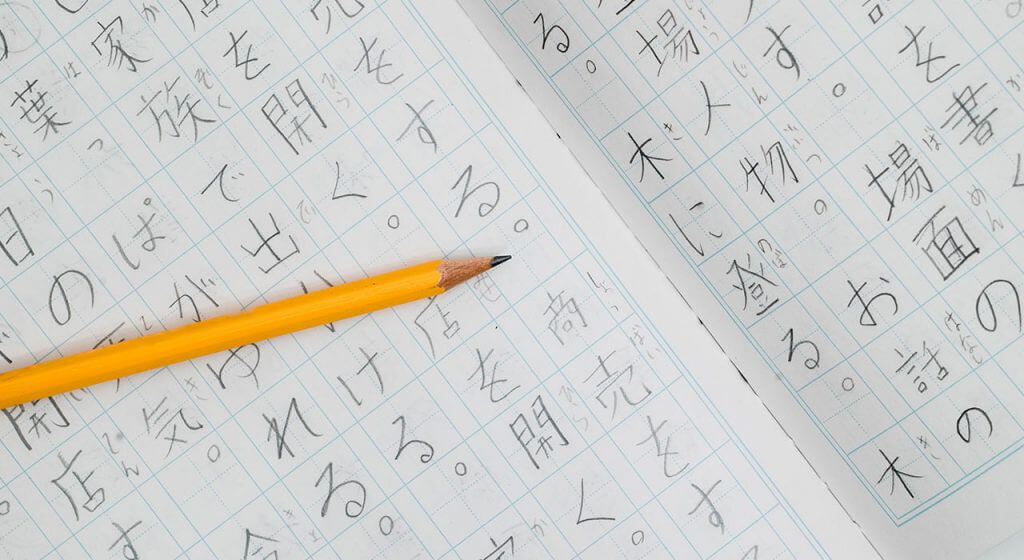 を書く
す。場面の
場人物。お話の
る。木に登る。木
売をする。商売をす
店を開く。店を開く。
家族で出かける。
葉っぱがゆれる。
日の天気。
開店す